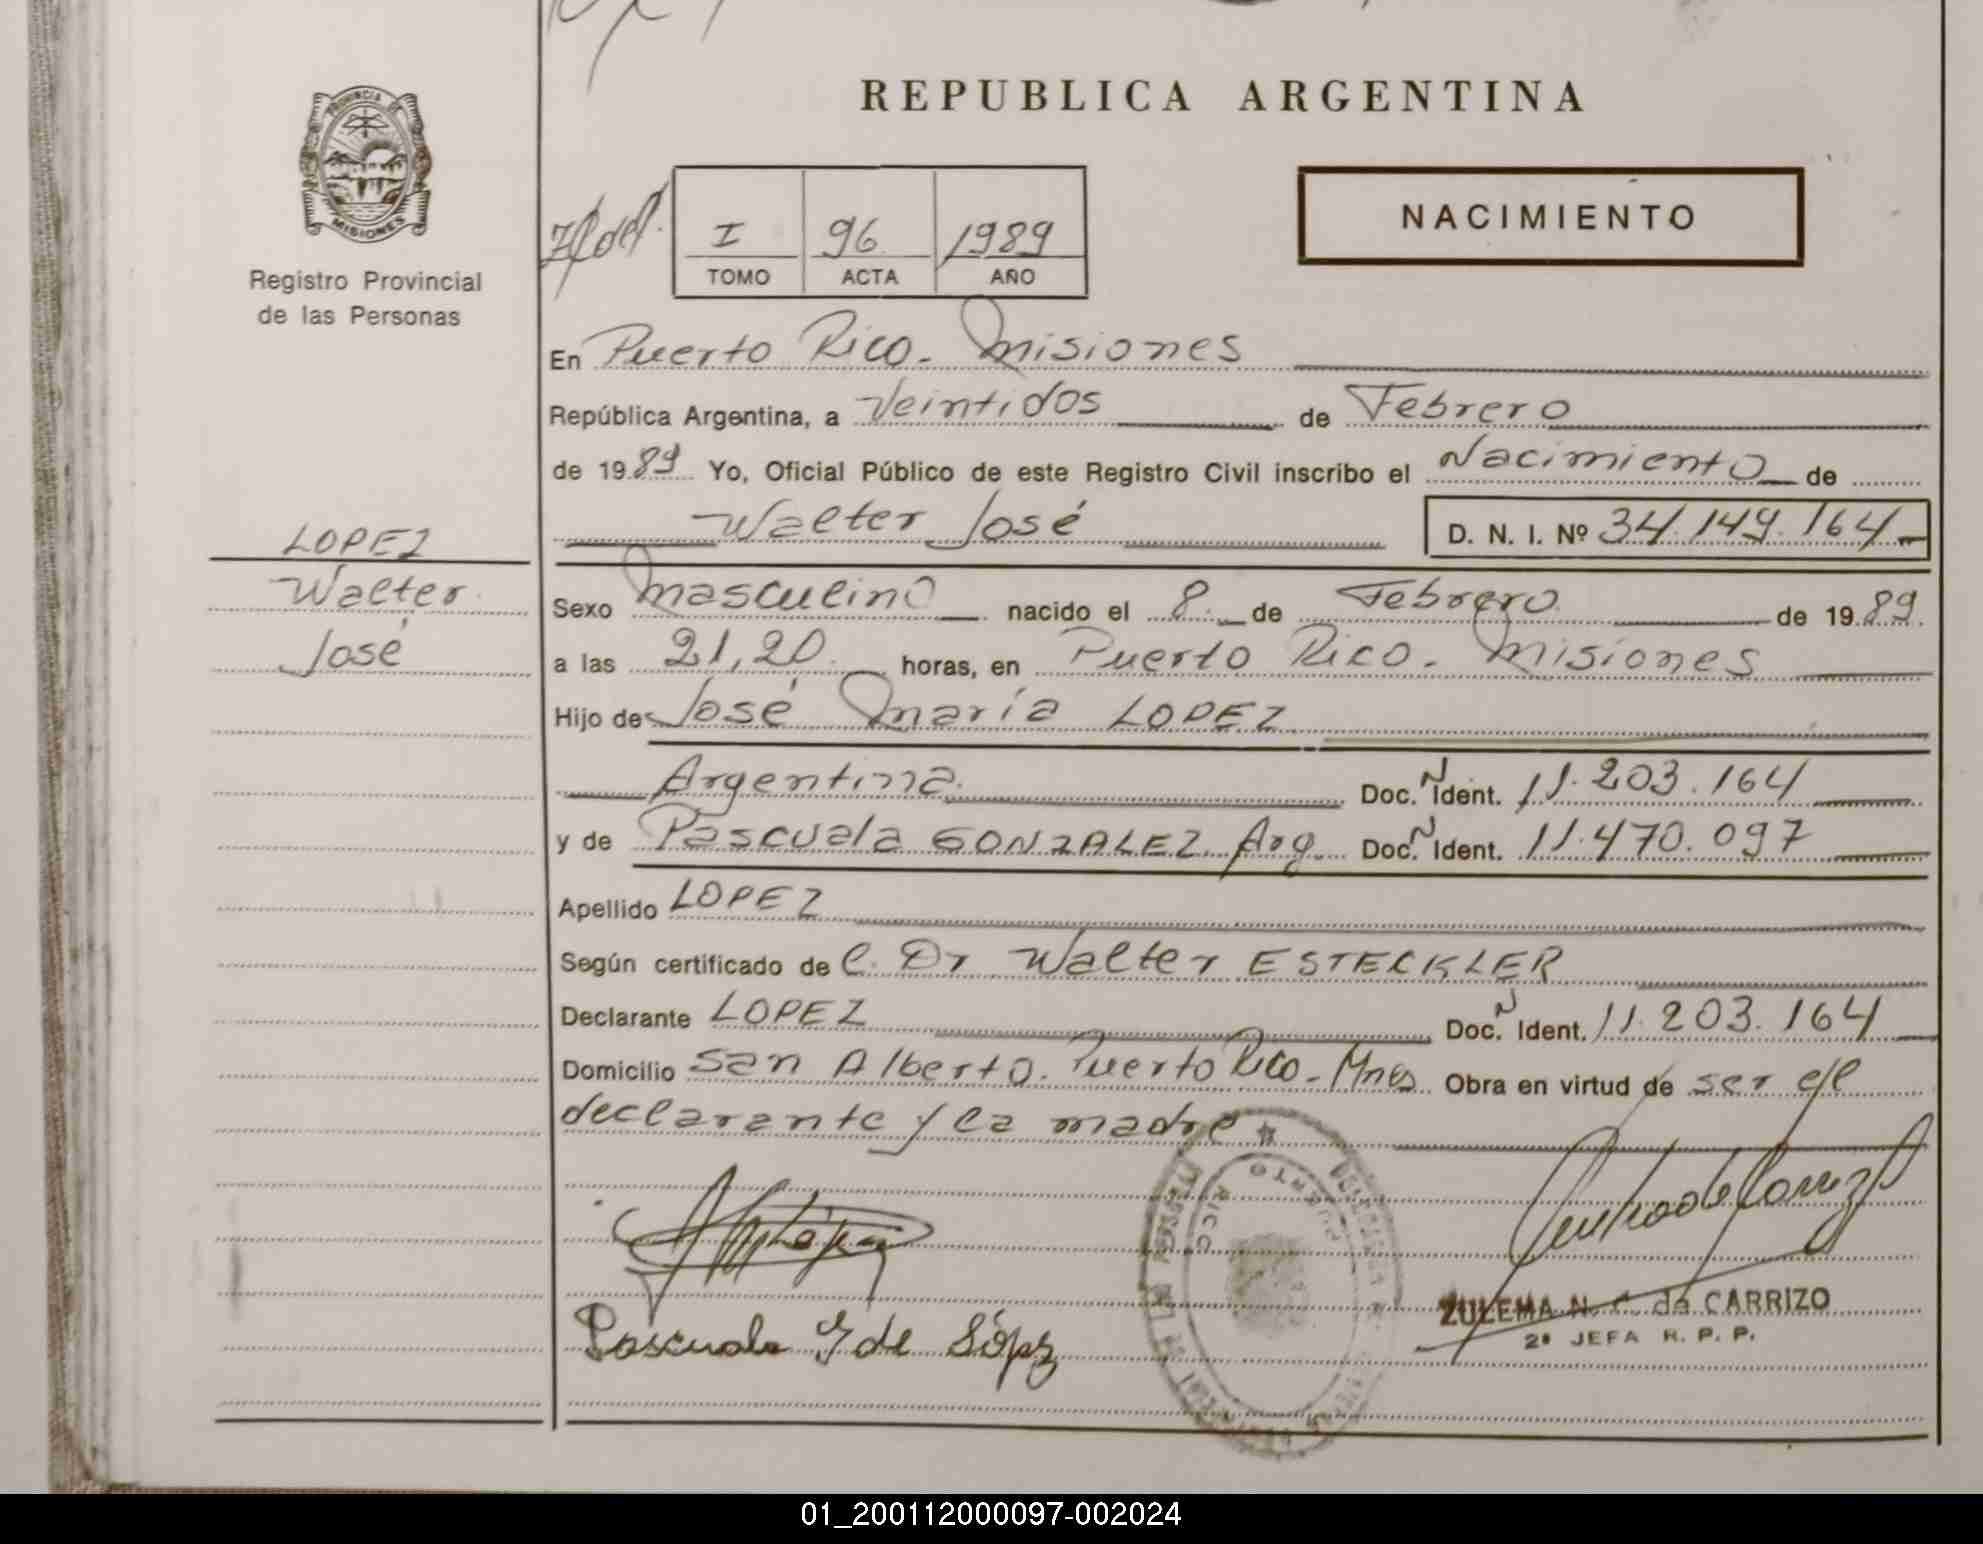 REPUBLICA ARGENTINA
PROVINCIA DE
MISIONES
Registro Provincial
de las Personas
I 96 1989
TOMO ACTA AÑO
NACIMIENTO
En Puerto Rico - Misiones
República Argentina, a Veintidos de Febrero
de 1989 Yo, Oficial Público de este Registro Civil inscribo el Nacimiento de
Walter José D. N. I. Nº 34.149.164
LOPEZ
Walter
José
Sexo Masculino nacido el 8 de Febrero de 1989
a las 21,20 horas, en Puerto Rico - Misiones
Hijo de José María LOPEZ
Argentina Doc. N Ident. 11.203.164
y de Pascuala GONZALEZ Arg. Doc. N Ident. 11.470.097
Apellido LOPEZ
Según certificado de C. Dr Walter ESTECKLER
Declarante LOPEZ Doc. N Ident. 11.203.164
Domicilio San Alberto. Puerto Rico - Mnes Obra en virtud de ser el
declarante y la madre
PUERTO RICO
López
Pascuala G de López
ZULEMA N. C. de CARRIZO
2ª JEFA R. P. P.
01_200112000097-002024